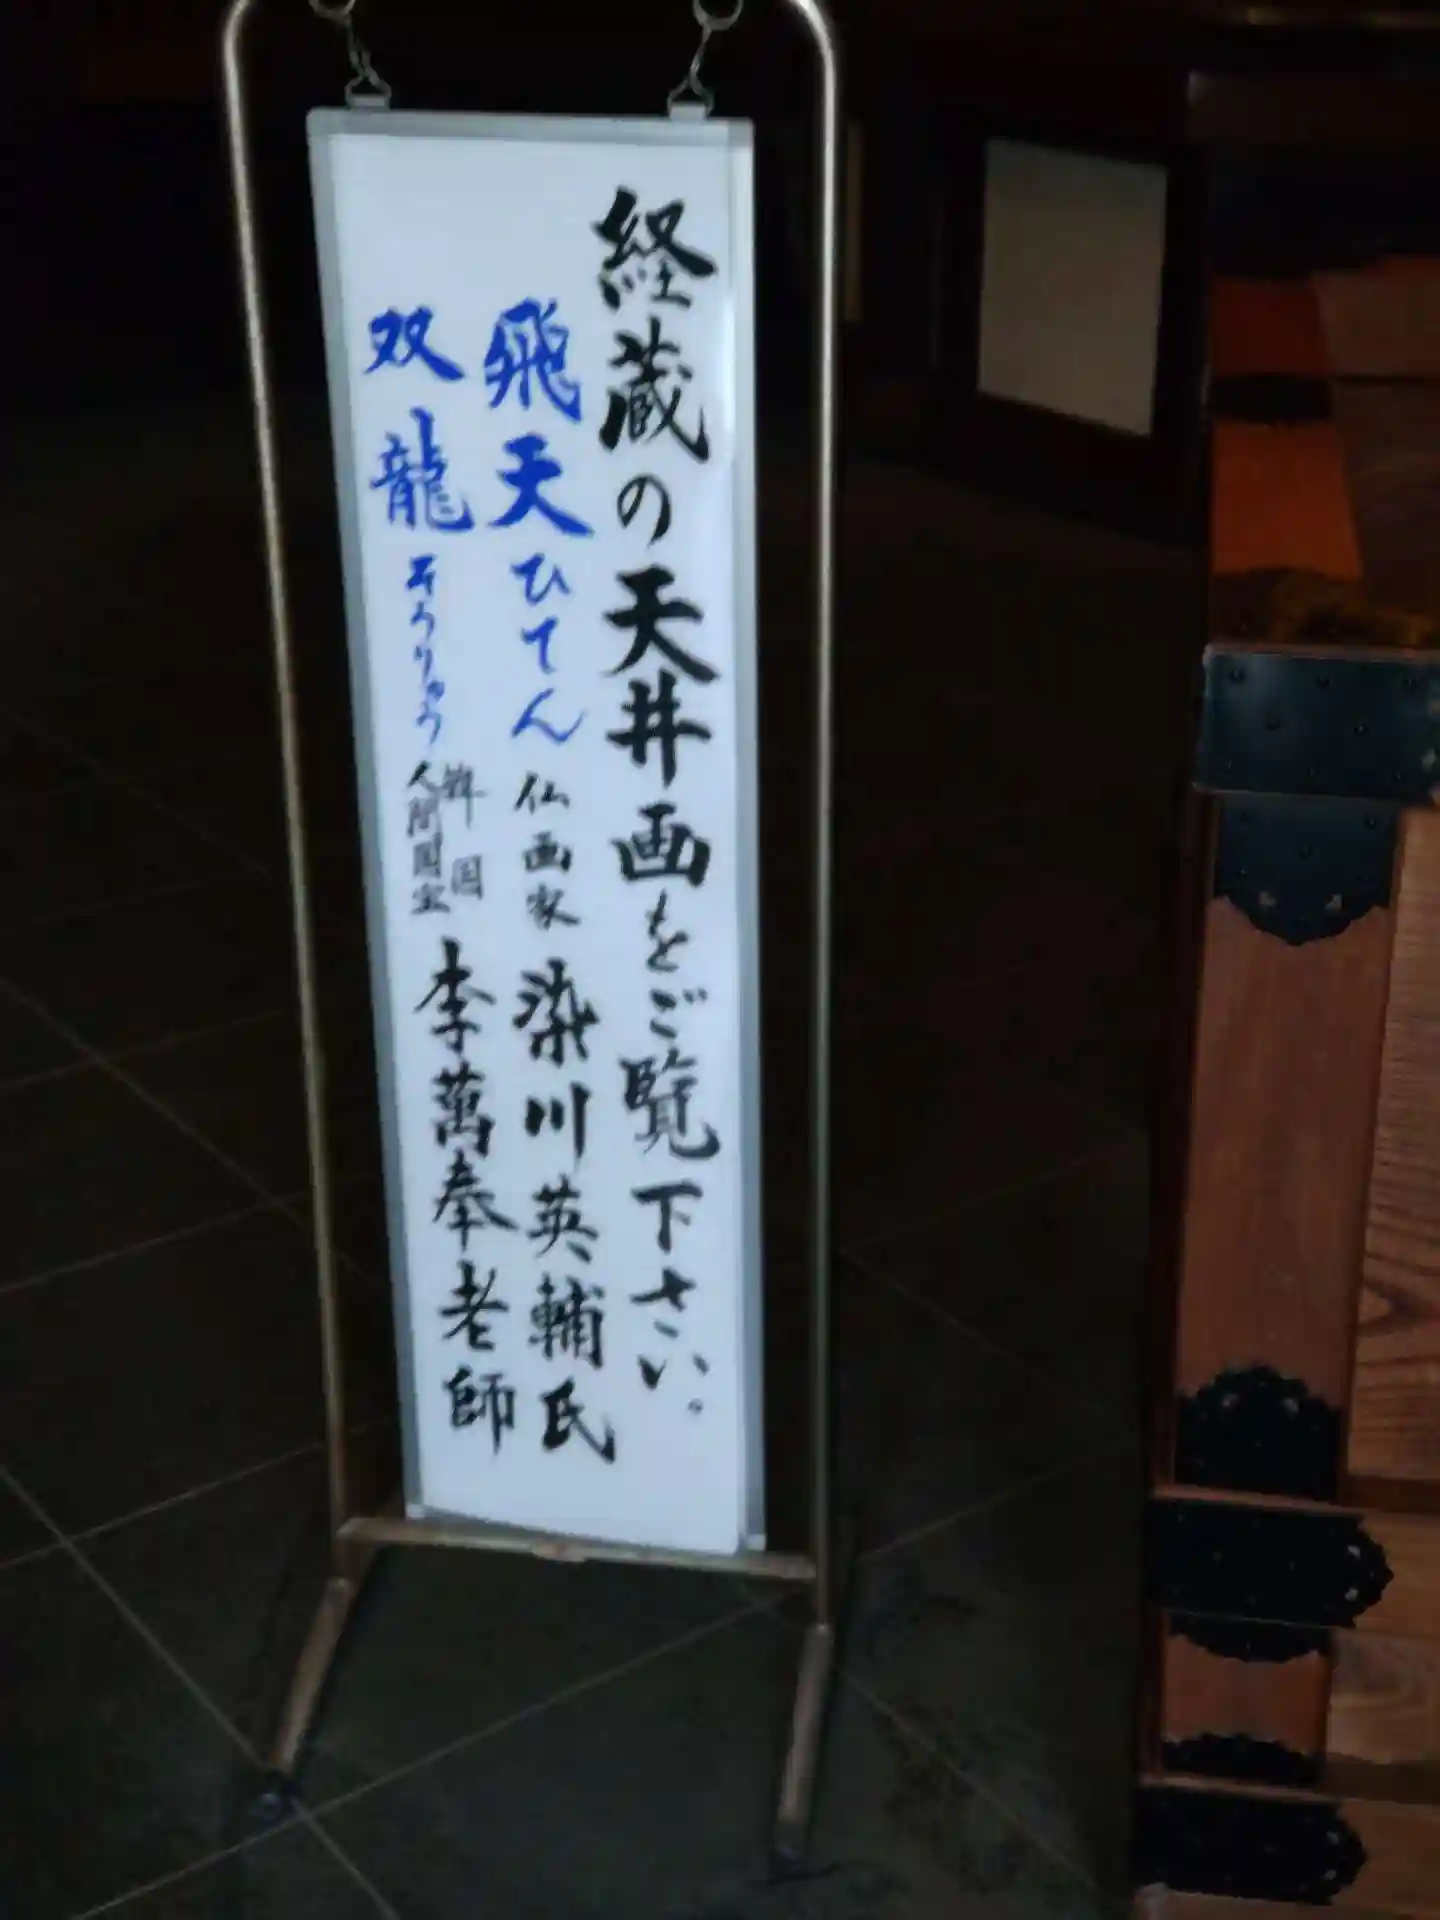 経蔵の天井画をご覧下さい。
飛天ひてん 仏画家 染川英輔氏
双龍そうりゅう 韓国人間国宝 李萬奉老師